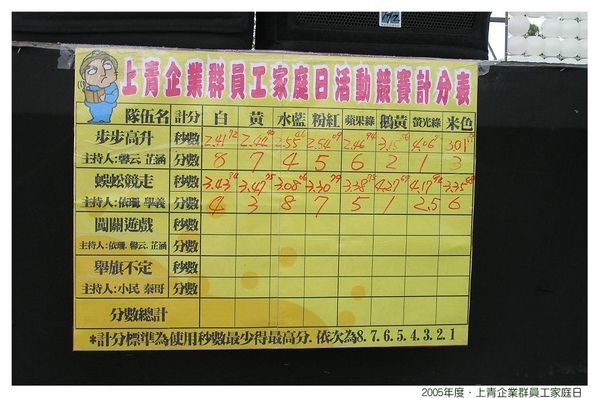 172
上青企業群員工家庭日活動競賽計分表
隊伍名 計分 白 黃 水藍 粉紅 蘋果綠 鵝黃 螢光綠 米色
步步高升 秒數 2.41 2.44 2.55 2.54 2.46 3.15 4.06 3.01
主持人:馨云 芷涵 分數 8 7 4 5 6 2 1 3
蜈蚣競走 秒數 3.43 3.47 3.08 3.30 3.38 4.27 4.17 3.35
主持人:依珊 學義 分數 4 3 8 7 5 1 2.5 6
闖關遊戲 秒數
主持人:依珊. 馨云. 芷涵 分數
舉旗不定 秒數
主持人:小民 泰哥 分數
分數總計
*計分標準為使用秒數最少得最高分. 依次為8.7.6.5.4.3.2.1
2005年度・上青企業群員工家庭日